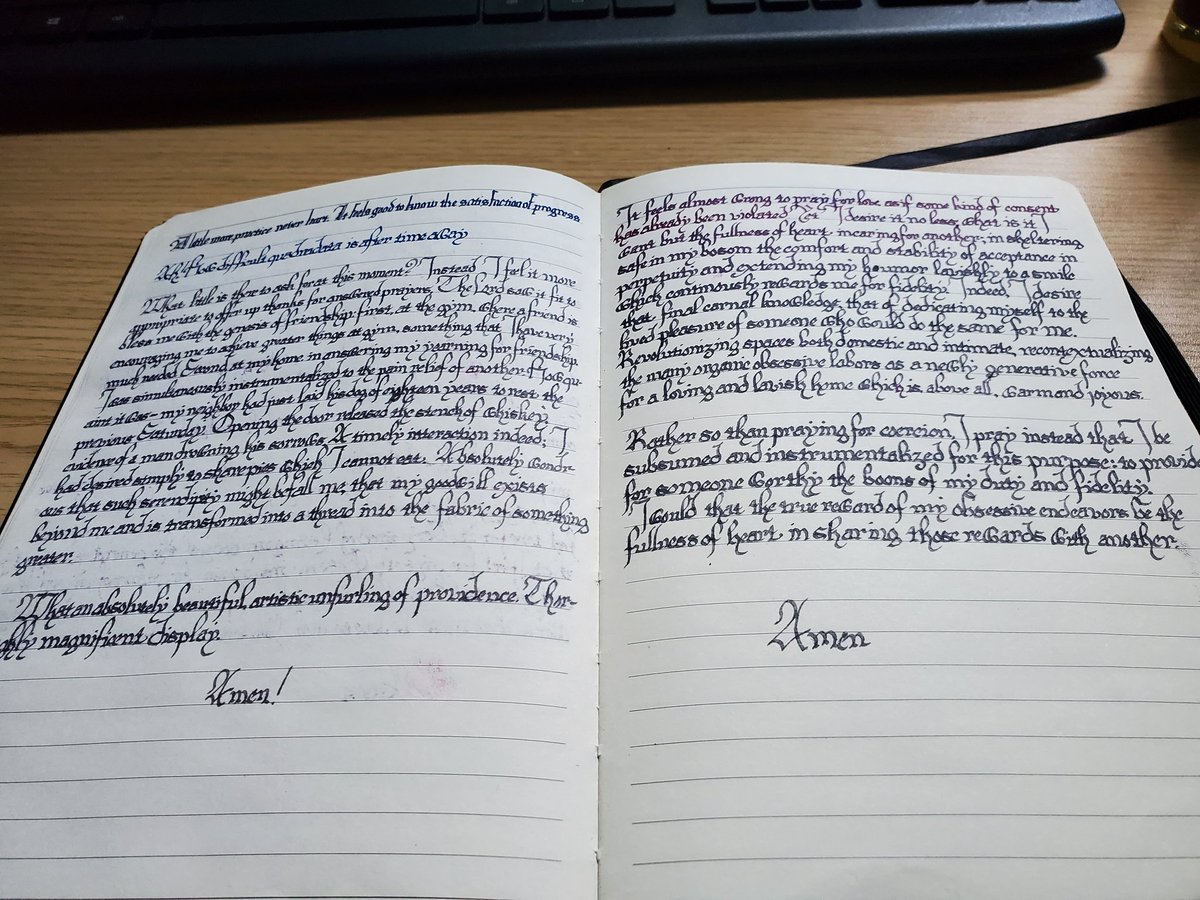 A little more practice never hurt. It feels good to know the satisfaction of progress
difficult quadridata is after time away
What little is there to ask for at this moment? Instead I feel it more
appropriate to offer up thanks for answered prayers. The Lord saw it fit to
bless me with the genesis of friendship: first, at the gym, where a friend is
encouraging me to achieve greater things at gym, something that I have very
much needed. Second at my home in answering my yearning for friendship,
I was simultaneously instrumentalized to the pain relief of another. How qu-
aint it was - my neighbor had just laid his dog of eighteen years to rest the
previous Saturday. Opening the door released the stench of whiskey,
evidence of a man drowning his sorrows. A timely interaction indeed; I
had desired simply to share pies which I cannot eat. Absolutely wondr-
ous that such serendipity might befall me, that my goodwill exists
beyond me and is transformed into a thread into the fabric of something
greater.
What an absolutely beautiful, artistic unfurling of providence. Thor-
ughly magnificent display.
Amen!
It feels almost wrong to pray for love as if some kind of consent
has already been violated. Yet I desire it no less, what is it I
want but the fullness of heart in caring for another; in sheltering
safe in my bosom the comfort and stability of acceptance in
perpetuity and extending my humor lavishly to a smile
which continously regards me for fidelity. Indeed, I desire
that final carnel knowledge, that of dedicating myself to the
lived pleasure of someone who would do the same for me.
Revolutionizing spaces both domestic and intimate, recontextualizing
the many organic obsessive labors as a newly generative force
for a loving and lavish home which is above all, warm and joyous.
Rather so than praying for coercion, I pray instead that I be
subsumed and instrumentalized for this purpose: to provide
for someone worthy the boons of my duty and fidelity.
I would that the true reward of my obsessive endeavors be the
fullness of heart in sharing those rewards with another.
Amen